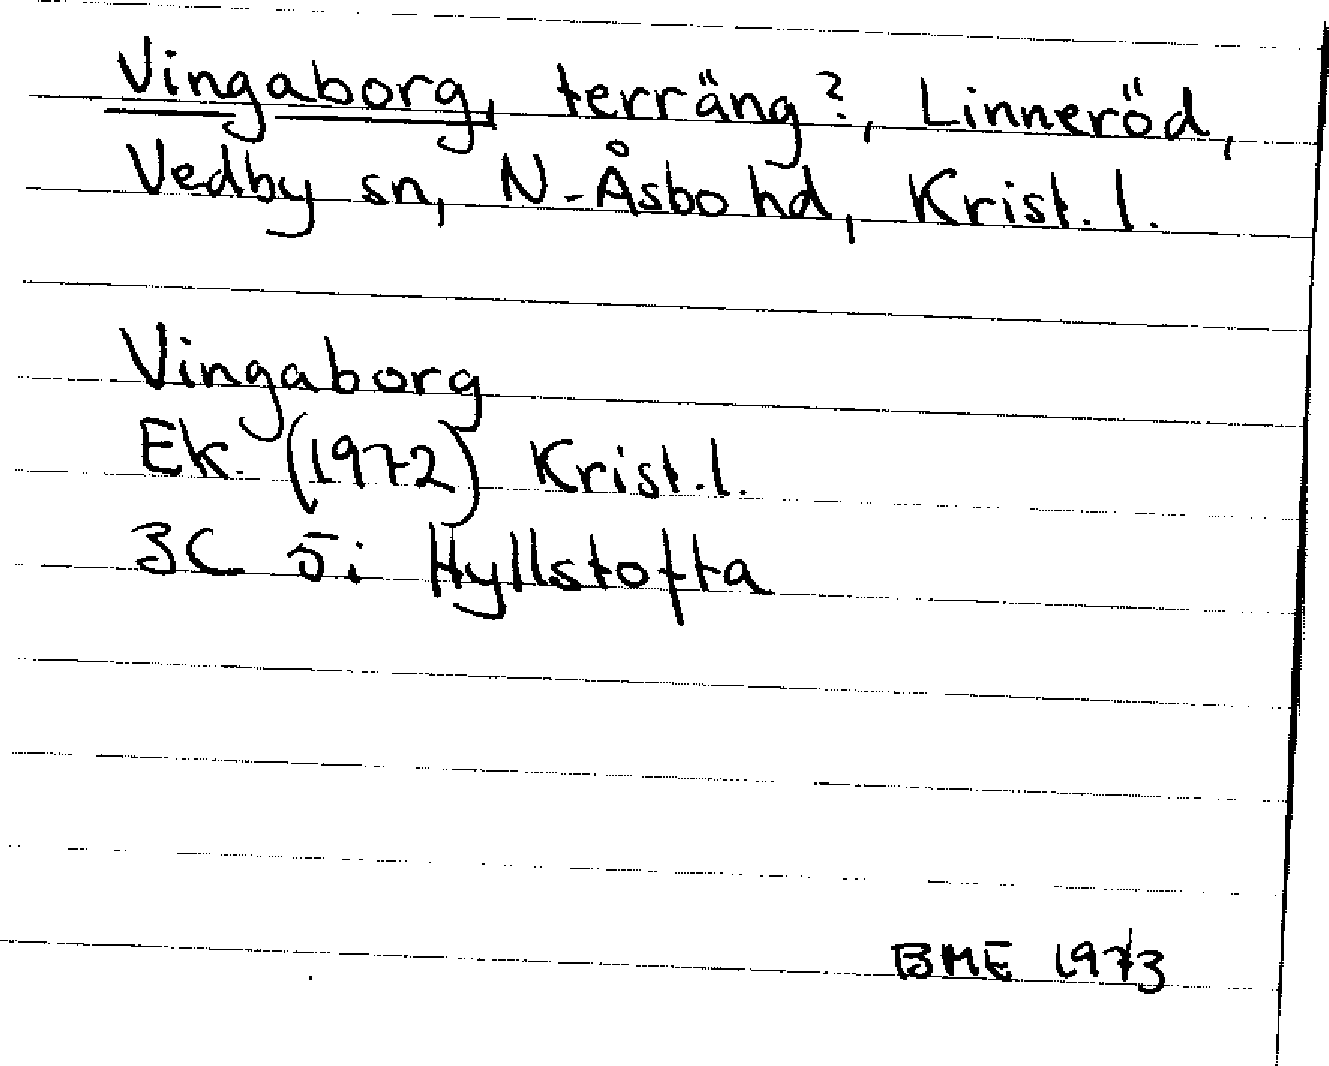 Vingaborg, terräng?, Linneröd,
Vedby sn, N-Åsbo hd, Krist. l.
Vingaborg
Ek. (1972) Krist. l.
3C 5i Hyllstofta
BME 1973